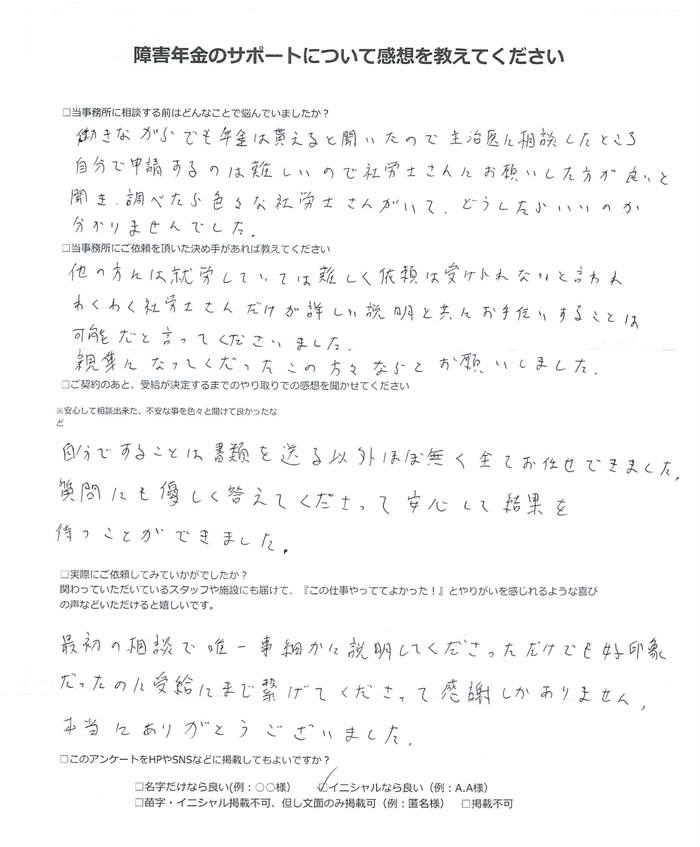 障害年金のサポートについて感想を教えてください
□当事務所に相談する前はどんなことで悩んでいましたか？
働きながらでも年金は貰えると聞いたので主治医に相談したところ
自分で申請するのは難しいので社労士さんにお願いした方が良いと
聞き、調べたら色々な社労士さんがいて、どうしたらいいのか
分かりませんでした。
□当事務所にご依頼を頂いた決め手があれば教えてください
他の方には就労していては難しく依頼は受けられないと言われ
わくわく社労士さんだけが詳しい説明と共にお手伝いすることは
可能だと言ってくださいました。
親身になってくだったこの方々ならとお願いしました。
□ご契約のあと、受給が決定するまでのやり取りでの感想を聞かせてください
※安心して相談出来た、不安な事を色々と聞けて良かったな
ど
自分ですることは書類を送る以外ほぼ無く全てお任せできました。
質問にも優しく答えてくださって安心して結果を
待つことができました。
□実際にご依頼してみていかがでしたか？
関わっていただいているスタッフや施設にも届けて、『この仕事やっててよかった！』とやりがいを感じれるような喜び
の声などいただけると嬉しいです。
最初の相談で唯一事細かに説明してくださっただけでも好印象
だったのに受給にまで繋げてくださって感謝しかありません。
本当にありがとうございました。
□このアンケートをHPやSNSなどに掲載してもよいですか？
□名字だけなら良い(例：○○様） ☑イニシャルなら良い（例：A.A様）
□苗字・イニシャル掲載不可、但し文面のみ掲載可（例：匿名様） □掲載不可